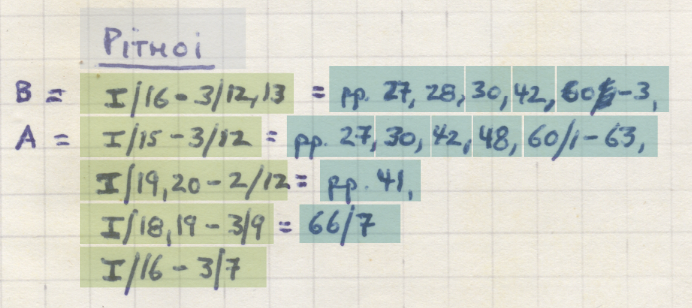 PITHOI
B = I/16 - 3/12, 13 = pp. 27, 28, 30, 42, 60-3,
A = I/15 - 3/12 = pp. 27, 30, 42, 48, 60/1-63,
I/19, 20 - 2/12 = pp. 41,
I/18, 19 - 3/9 = 66/7
I/16 - 3/7